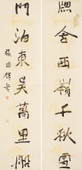 牕含西嶺千秋雪
門泊東吳萬里船